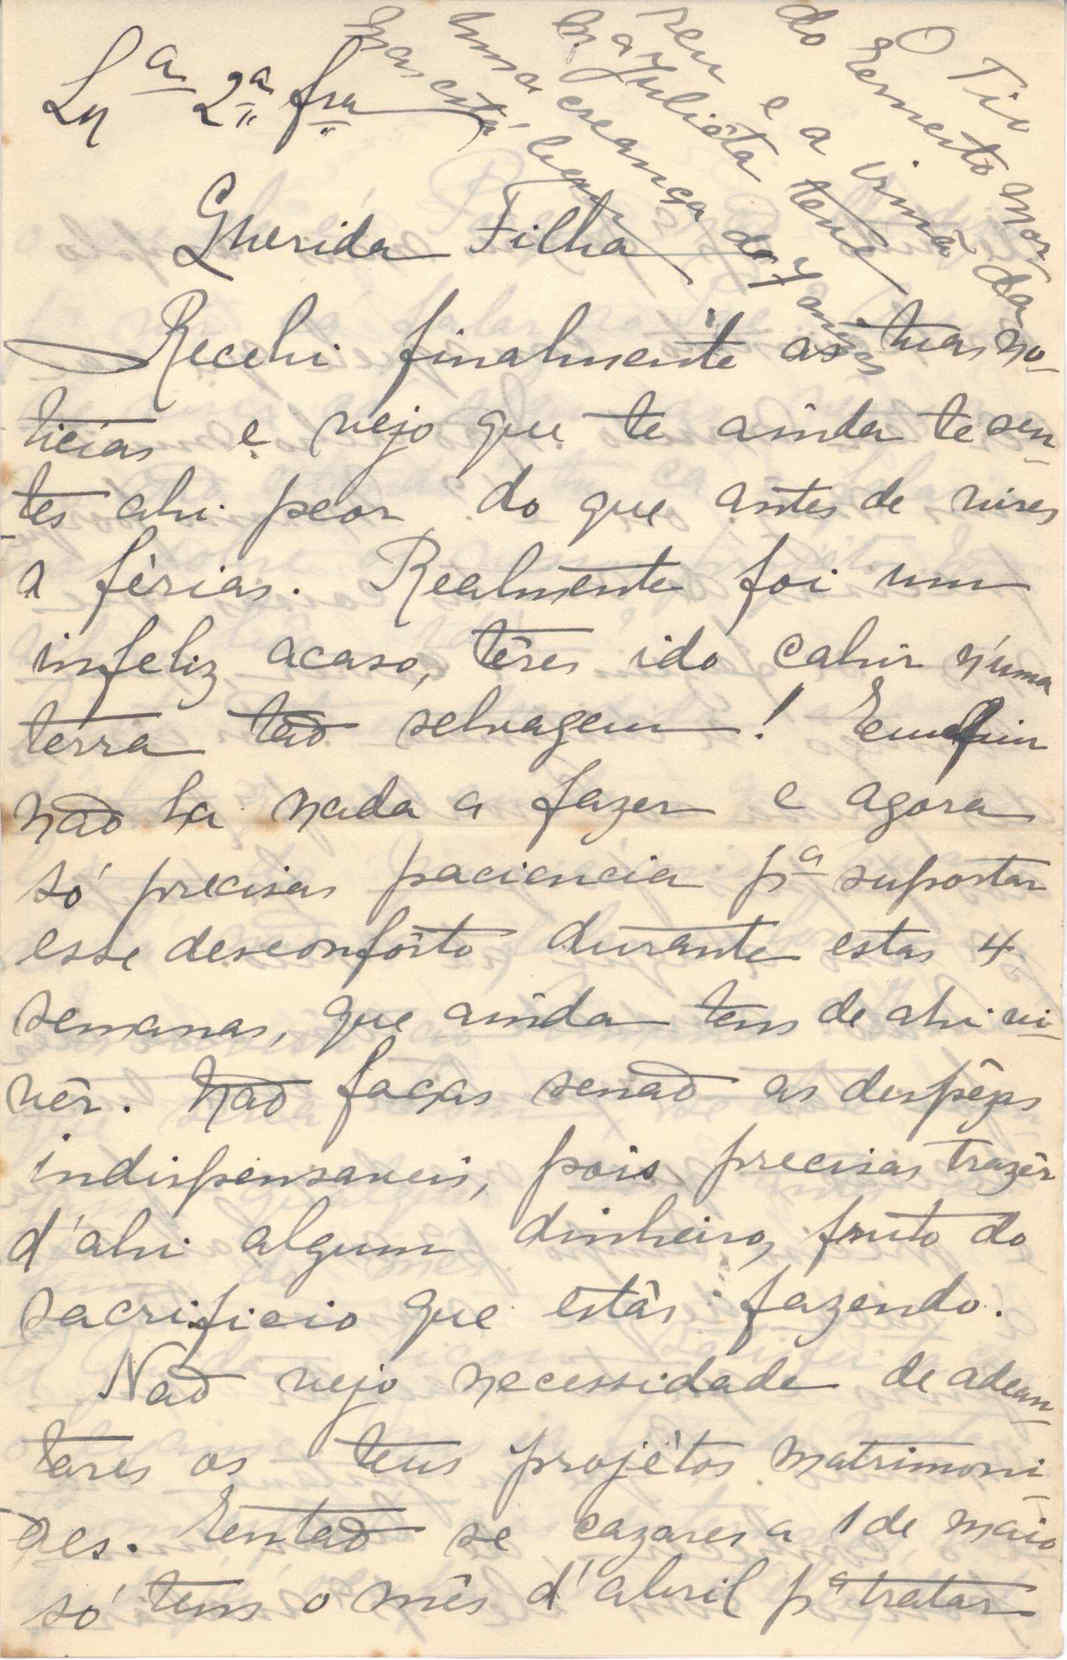 Lxª 2ª fra
Querida Filha
Recebi finalmente as tuas no-
ticias e vejo que te ainda te sen-
tes ahi peor do que antes de vires
a férias. Realmente foi um
infeliz acaso, têres ido cahir n'uma
terra tão selvagem! Emfim
não ha nada a fazer e agora
só precisas paciencia pª suportar
esse desconforto durante estas 4
semanas, que ainda tens de ahi vi-
vêr. Não faças senão as despêzas
indispensaveis, pois precisas trazêr
d'ahi algum dinheiro, fruto do
sacrificio que estás fazendo.
Não vejo necessidade de adean-
tares os teus projétos matrimoni-
aes. Então se cazares a 1 de maio
só tens o mês d'abril pª tratar
O Tio
do Ernesto mor-
reu e a irmã da
Mª Julièta teve
uma creança
mas está bem